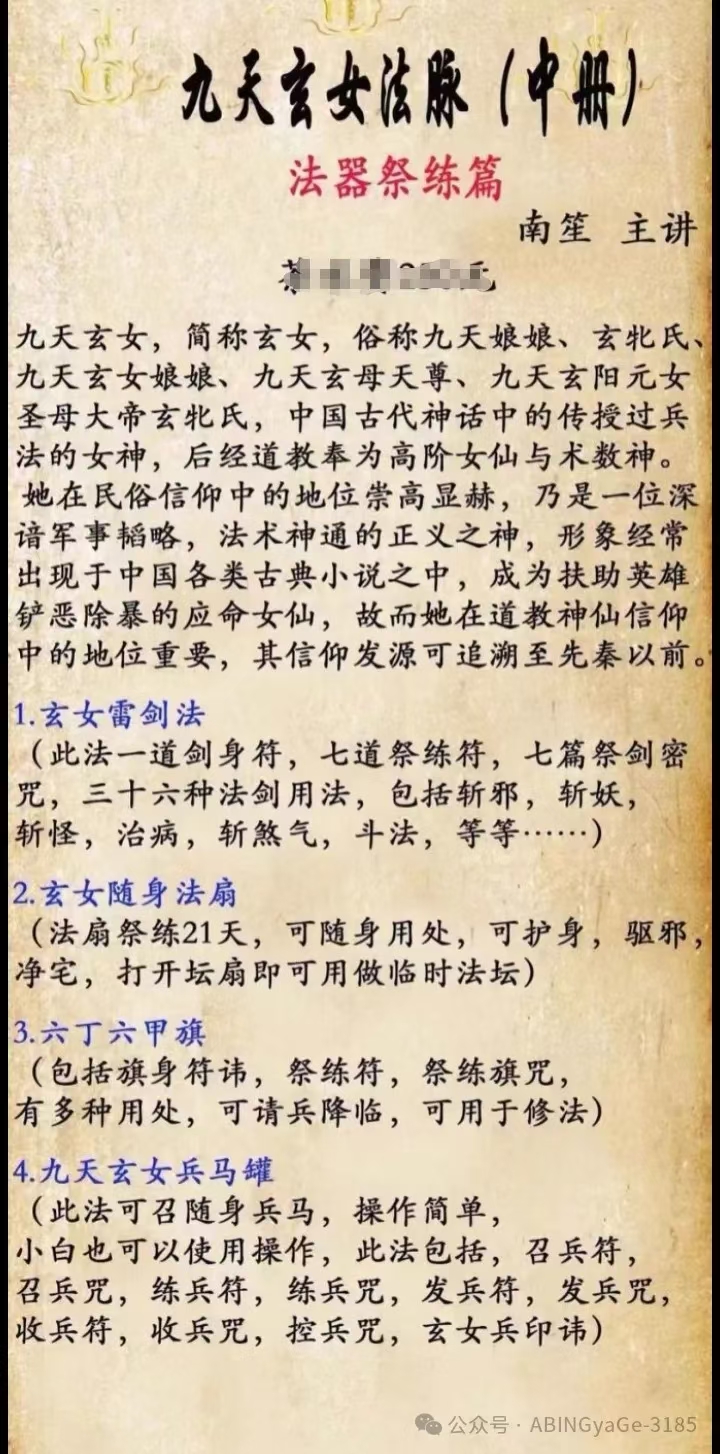 九天玄女法脉（中册）
法器祭练篇
南笙 主讲
元
九天玄女，简称玄女，俗称九天娘娘、玄牝氏、
九天玄女娘娘、九天玄母天尊、九天玄阳元女
圣母大帝玄牝氏，中国古代神话中的传授过兵
法的女神，后经道教奉为高阶女仙与术数神。
她在民俗信仰中的地位崇高显赫，乃是一位深
谙军事韬略，法术神通的正义之神，形象经常
出现于中国各类古典小说之中，成为扶助英雄
铲恶除暴的应命女仙，故而她在道教神仙信仰
中的地位重要，其信仰发源可追溯至先秦以前。
1.玄女雷剑法
（此法一道剑身符，七道祭练符，七篇祭剑密
咒，三十六种法剑用法，包括斩邪，斩妖，
斩怪，治病，斩煞气，斗法，等等……）
2.玄女随身法扇
（法扇祭练21天，可随身用处，可护身，驱邪，
净宅，打开坛扇即可用做临时法坛）
3.六丁六甲旗
（包括旗身符讳，祭练符，祭练旗咒，
有多种用处，可请兵降临，可用于修法）
4.九天玄女兵马罐
（此法可召随身兵马，操作简单，
小白也可以使用操作，此法包括，召兵符，
召兵咒，练兵符，练兵咒，发兵符，发兵咒，
收兵符，收兵咒，控兵咒，玄女兵印讳）
公众号·ABINGyaGe-3185